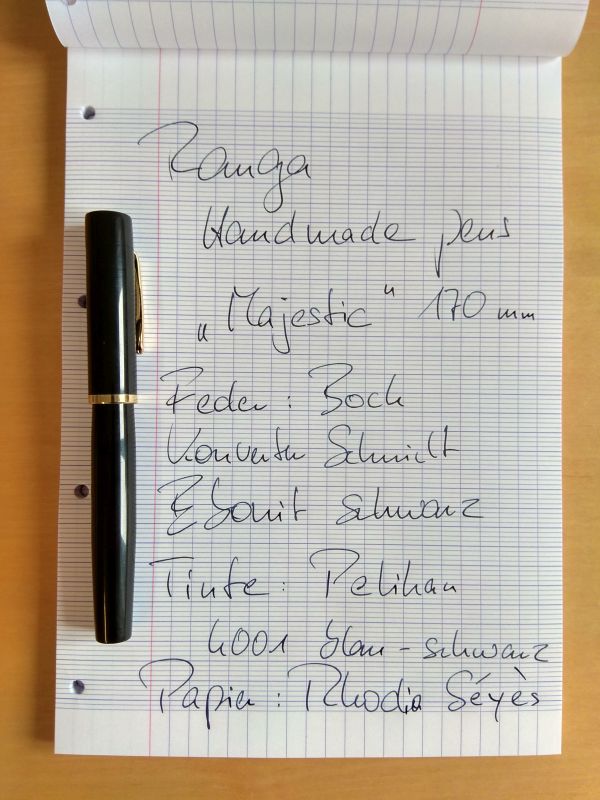 Ranga
Handmade pens
„Majestic" 170 mm
Feder: Bock
Konverter Schmidt
Ebonit schwarz
Tinte: Pelikan
4001 blau-schwarz
Papier: Rhodia Séyès